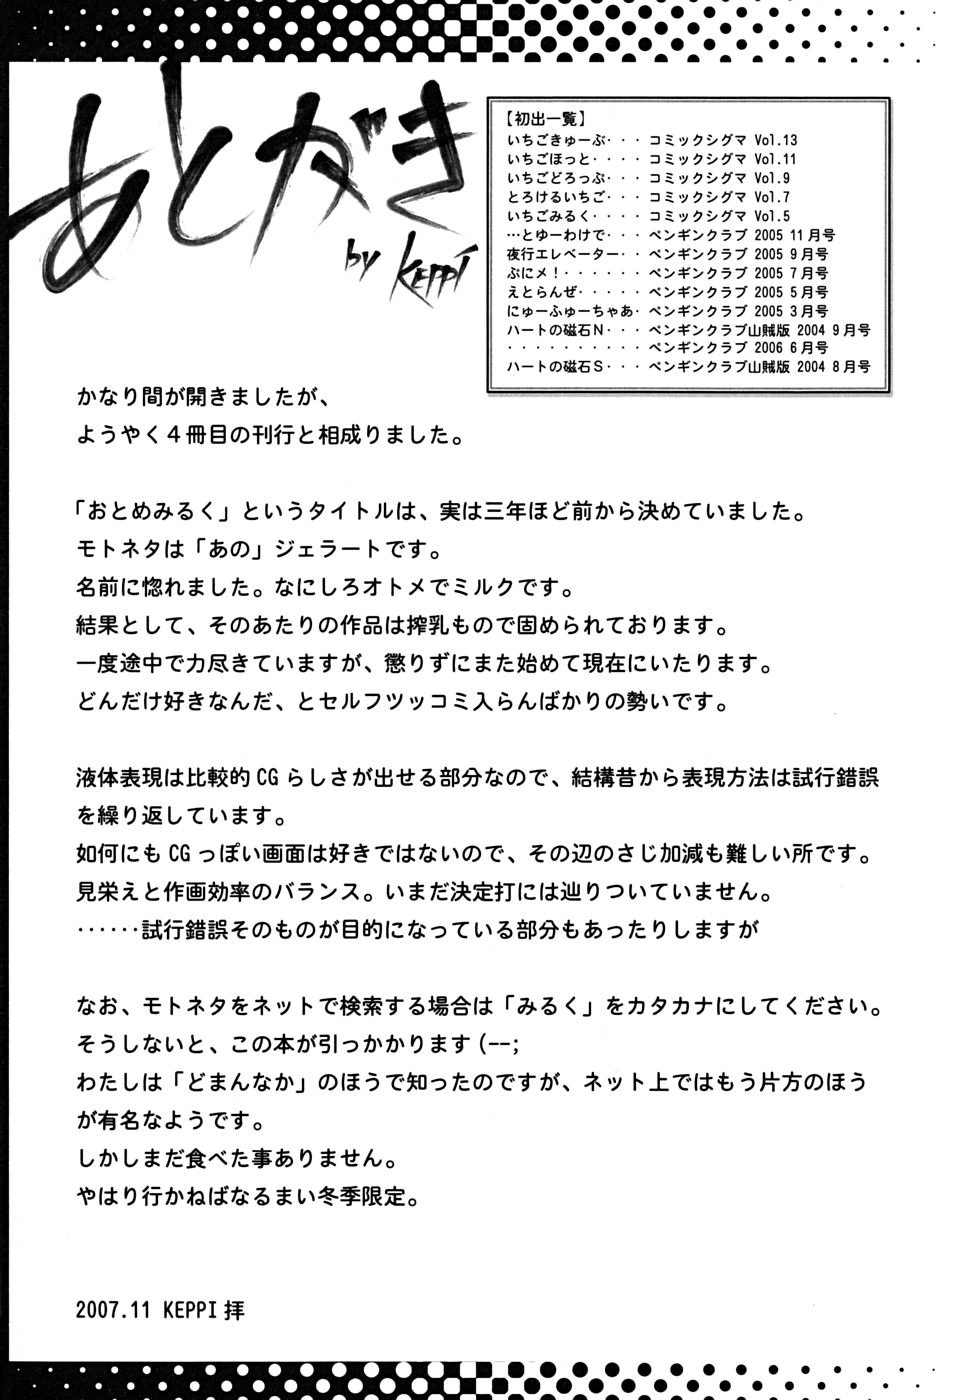 あとがき
by KEPPI
【初出一覧】
いちごきゅーぶ・・・コミックシグマ Vol.13
いちごほっと・・・・コミックシグマ Vol.11
いちごどろっぷ・・・コミックシグマ Vol.9
とろけるいちご・・・コミックシグマ Vol.7
いちごみるく・・・・コミックシグマ Vol.5
…とゆーわけで・・・ペンギンクラブ 2005 11月号
夜行エレベーター・・ペンギンクラブ 2005 9月号
ぷにメ！・・・・・・ペンギンクラブ 2005 7月号
えとらんぜ・・・・・ペンギンクラブ 2005 5月号
にゅーふゅーちゃあ・ペンギンクラブ 2005 3月号
ハートの磁石Ｎ・・・ペンギンクラブ山賊版 2004 9月号
・・・・・・・・・・ペンギンクラブ 2006 6月号
ハートの磁石Ｓ・・・ペンギンクラブ山賊版 2004 8月号
かなり間が開きましたが、
ようやく４冊目の刊行と相成りました。
「おとめみるく」というタイトルは、実は三年ほど前から決めていました。
モトネタは「あの」ジェラートです。
名前に惚れました。なにしろオトメでミルクです。
結果として、そのあたりの作品は搾乳もので固められております。
一度途中で力尽きていますが、懲りずにまた始めて現在にいたります。
どんだけ好きなんだ、とセルフツッコミ入らんばかりの勢いです。
液体表現は比較的CGらしさが出せる部分なので、結構昔から表現方法は試行錯誤
を繰り返しています。
如何にもCGっぽい画面は好きではないので、その辺のさじ加減も難しい所です。
見栄えと作画効率のバランス。いまだ決定打には辿りついていません。
‥‥‥試行錯誤そのものが目的になっている部分もあったりしますが
なお、モトネタをネットで検索する場合は「みるく」をカタカナにしてください。
そうしないと、この本が引っかかります(--;
わたしは「どまんなか」のほうで知ったのですが、ネット上ではもう片方のほう
が有名なようです。
しかしまだ食べた事ありません。
やはり行かねばなるまい冬季限定。
2007.11 KEPPI拝